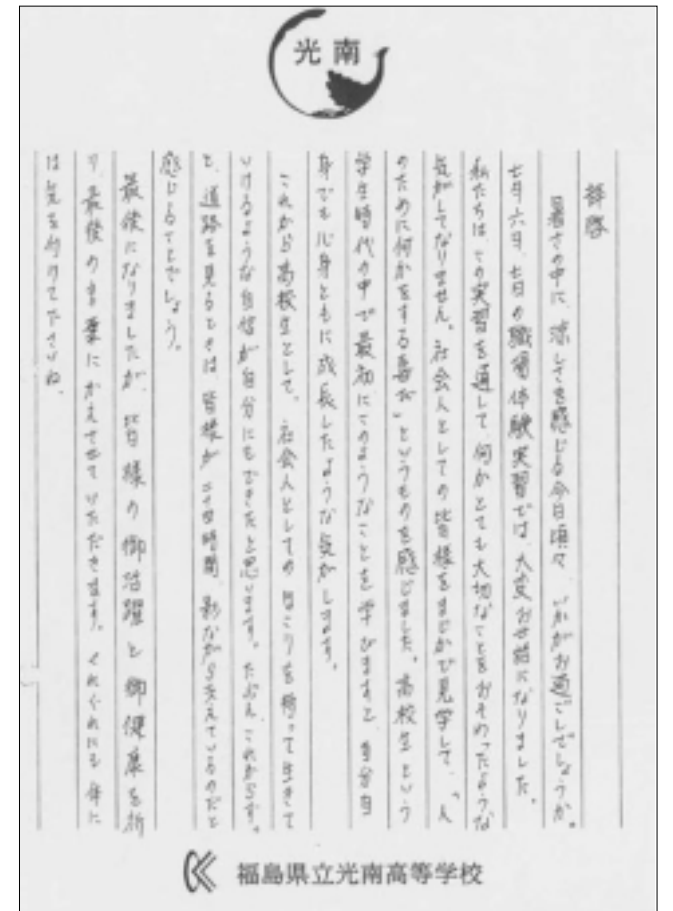 光南
拝啓
暑さの中に、涼しさを感じる今日頃々、いかがお過ごしでしょうか。
七月六日、七日の職場体験実習では、大変お世話になりました。
私たちは、この実習を通して、何かとても大切なことをおそわったような
気がしてなりません。社会人としての皆様をまぢかで見学して、「人
のために何かをする喜び」というものを感じました。高校生という
学生時代の中で最初にこのようなことを学びますと、自分自
身でも心身ともに成長したような気がします。
これから高校生として、社会人としてのほこりを持って生きて
いけるような自信が自分にもできたと思います。たぶん、これからずっ
と、道路を見るときは、皆様が二十四時間、影ながら支えているのだと
感じることでしょう。
最後になりましたが、皆様の御活躍と御健康を祈
り、最後の言葉にかえさせていただきます。くれぐれにも体に
は気を付けて下さいね。
福島県立光南高等学校